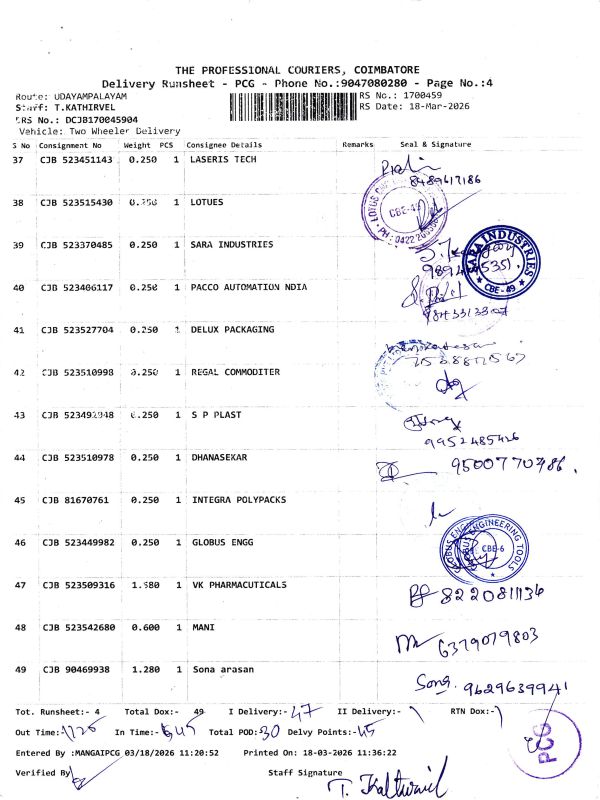 THE PROFESSIONAL COURIERS, COIMBATORE
Delivery Runsheet - PCG - Phone No.:9047080280 - Page No.:4
Route: UDAYAMPALAYAM
RS No.: 1700459
Staff: T.KATHIRVEL
RS Date: 18-Mar-2026
DRS No.: DCJB170045904
Vehicle: Two Wheeler Delivery
S No Consignment No Weight PCS Consignee Details Remarks Seal & Signature
37 CJB 523451143 0.250 1 LASERIS TECH
8489617186
38 CJB 523515430 0.250 1 LOTUES
CBE-49
39 CJB 523370485 0.250 1 SARA INDUSTRIES
SARA INDUSTRIES
CBE-49
40 CJB 523406117 0.250 1 PACCO AUTOMATION NDIA
41 CJB 523527704 0.250 1 DELUX PACKAGING
42 CJB 523510998 0.250 1 REGAL COMMODITER
43 CJB 523492948 0.250 1 S P PLAST
9952485426
44 CJB 523510978 0.250 1 DHANASEKAR
9500770786.
45 CJB 81670761 0.250 1 INTEGRA POLYPACKS
46 CJB 523449982 0.250 1 GLOBUS ENGG
GLOBUS ENGINEERING TOOLS
CBE-6
47 CJB 523509316 1.580 1 VK PHARMACUTICALS
822081134
48 CJB 523542680 0.600 1 MANI
6379079803
49 CJB 90469938 1.280 1 Sona arasan
Song. 9629639941
Tot. Runsheet:- 4 Total Dox:- 49 I Delivery:- 47 II Delivery:- RTN Dox:-
Out Time: In Time:- Total POD: 30 Delvy Points:- 45
PCG
Entered By :MANGAIPCG 03/18/2026 11:20:52 Printed On: 18-03-2026 11:36:22
Verified By
Staff Signature